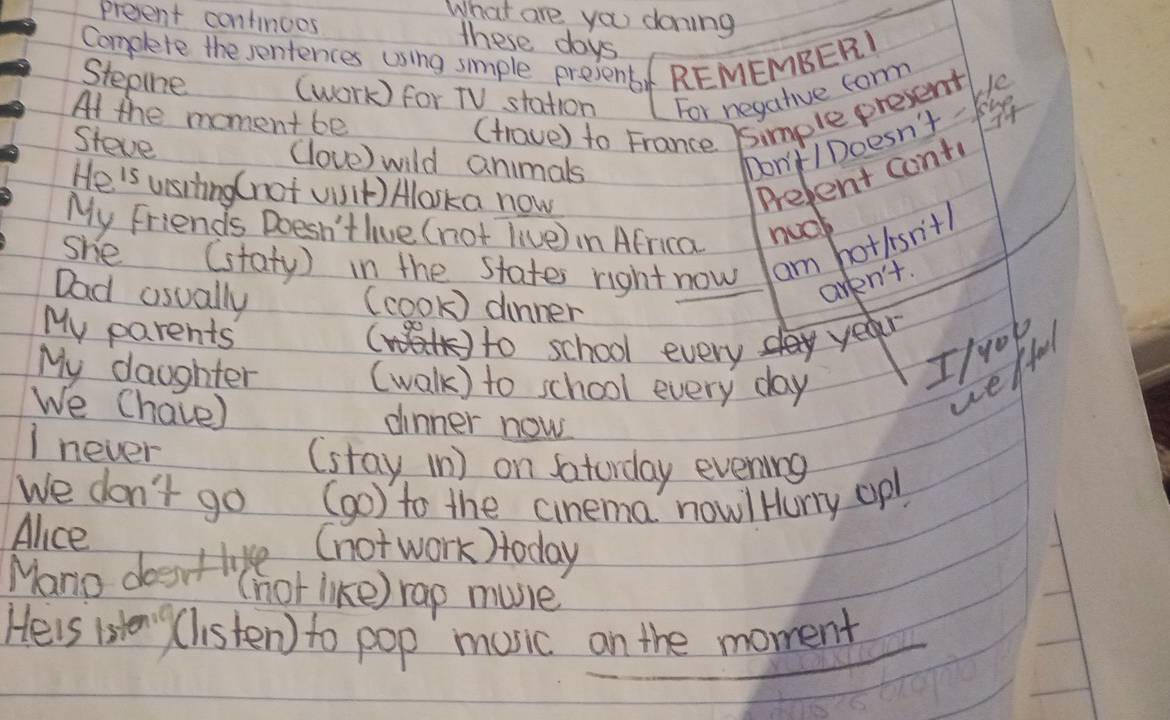 Present continuos
What are you doning
these days
Complete the sentences using simple present
Stepine (work) for TV station
At the moment be (trave) to France
Steve (love) wild animals
He is visiting (not visit) Alaska now
My friends Doesn't live (not live) in Africa
She (staty) in the States right now
Dad usually (cook) dinner
My parents (go) to school every day year
My daughter (walk) to school every day
We (have) dinner now
I never (stay in) on Saturday evening
We don't go (go) to the cinema now! Hurry up!
Alice (not work) today
Mario doesn't like (not like) rap
He is (listen) to pop music an the moment
REMEMBER!
For negative
Simple present
Don't / Doesn't - He
she
It
Present Conti
nuos
am not / isn't /
aren't.
I / you
we /